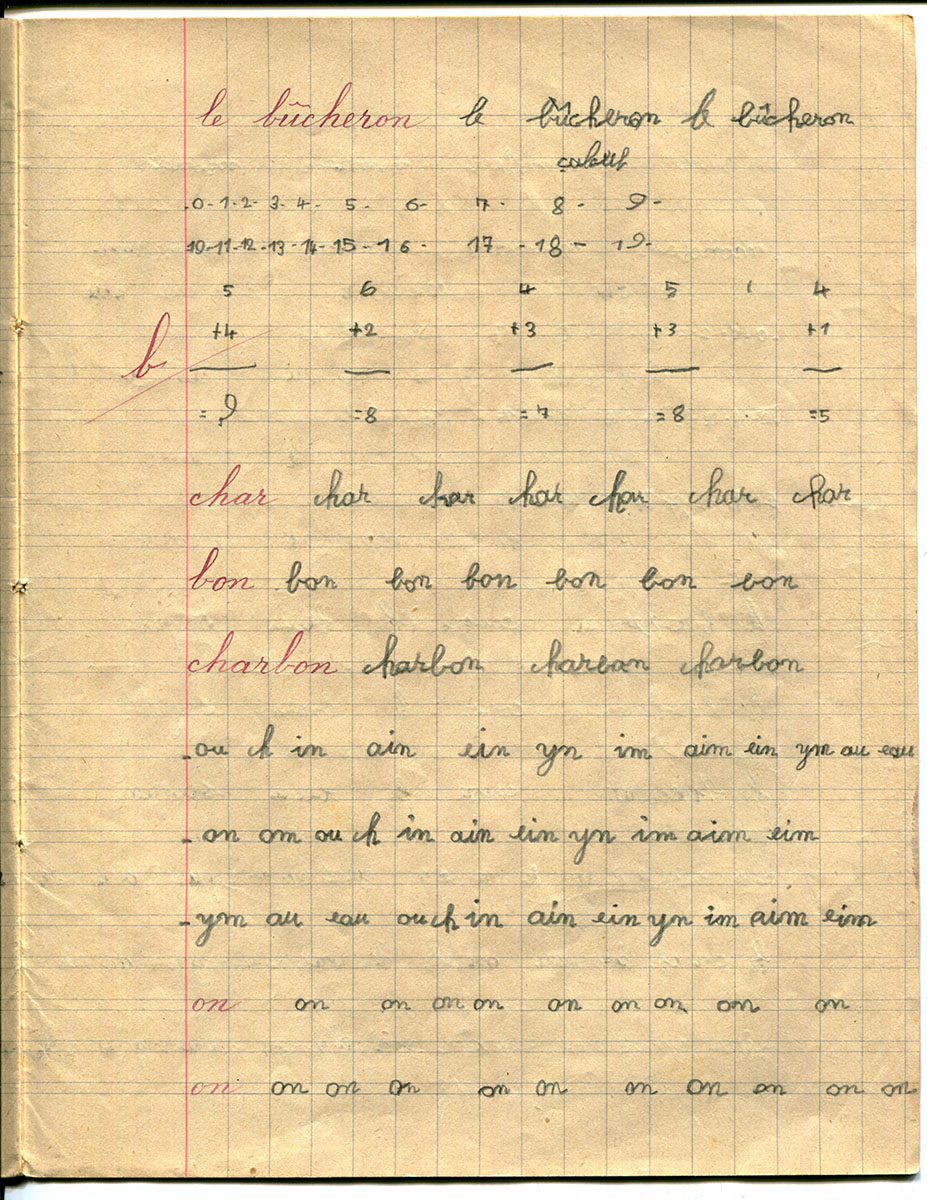 le bûcheron le bûcheron le bûcheron
calcul
0-1-2-3-4-5-6-7-8-9-
10-11-12-13-14-15-16-17-18-19-
5 6 4 5 4
+4 +2 +3 +3 +1
b
=9 =8 =7 =8 =5
char char char char char char char
bon bon bon bon bon bon bon
charbon charbon charban charbon
-ou ch in ain ein yn im aim ein ym au eau
-on om ou ch in ain ein yn im aim eim
-ym au eau ou ch in ain ein yn im aim eim
on on on on on on on on on on
on on on on on on on on on on on